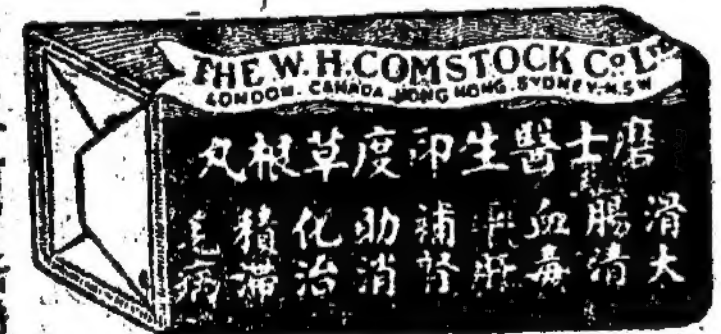 THE W.H.COMSTOCK Co. LTD.
LONDON. CANADA. HONG KONG. SYDNEY. N.S.W
磨士醫生印度草根丸
滑大
腸清
血毒
平肝
補腎
助消
化治
積滯
病